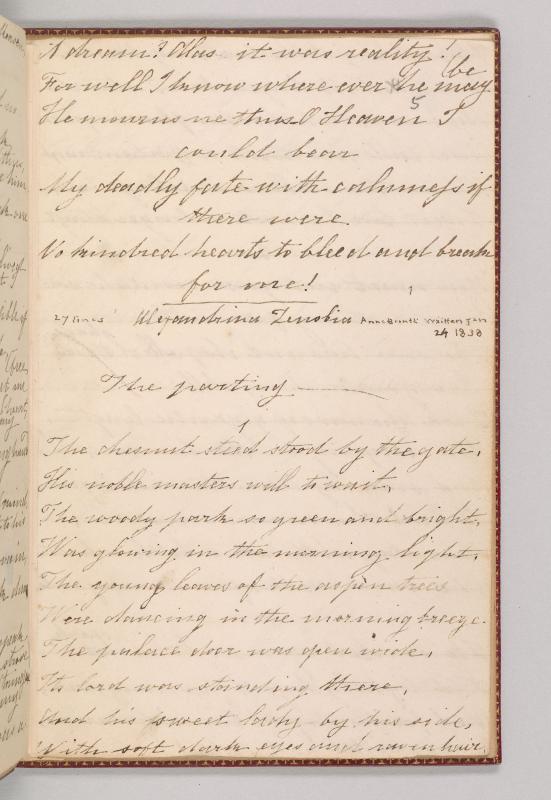 A dream? Alas it was reality!
For well I know where ever he may (be
5
He mourns me thus O Heaven I
could bear
My deadly fate with calmness if
there were
No kindred hearts to bleed and break
for me!
27 lines Alexandrina Zenobia Anne Brontë Written Jan
24 1838
The parting
1
The chesnut steed stood by the gate,
His noble masters will to wait,
The woody park so green and bright,
Was glowing in the morning light,
The young leaves of the aspen trees
Were dancing in the morning breeze.
The palace door was open wide,
Its lord was standing there,
And his sweet lady by his side,
With soft dark eyes and raven hair.